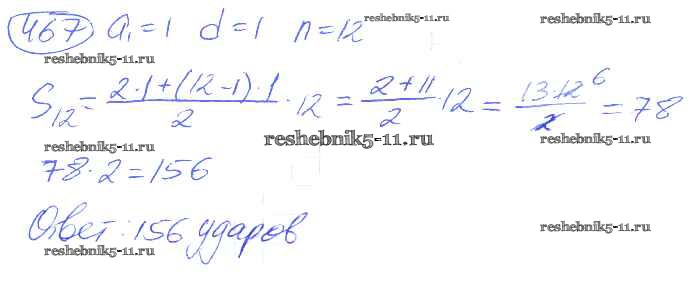 467 a₁=1 d=1 n=12 reshebnik5-11.ru
reshebnik5-11.ru reshebnik5-11.ru
S₁₂ = (2·1+(12-1)·1)/2 · 12 = (2+11)/2 · 12 = (13·12⁶)/2 = 78
reshebnik5-11.ru reshebnik5-11.ru reshebnik5-11.ru
78·2=156
Ответ: 156 ударов
reshebnik5-11.ru reshebnik5-11.ru